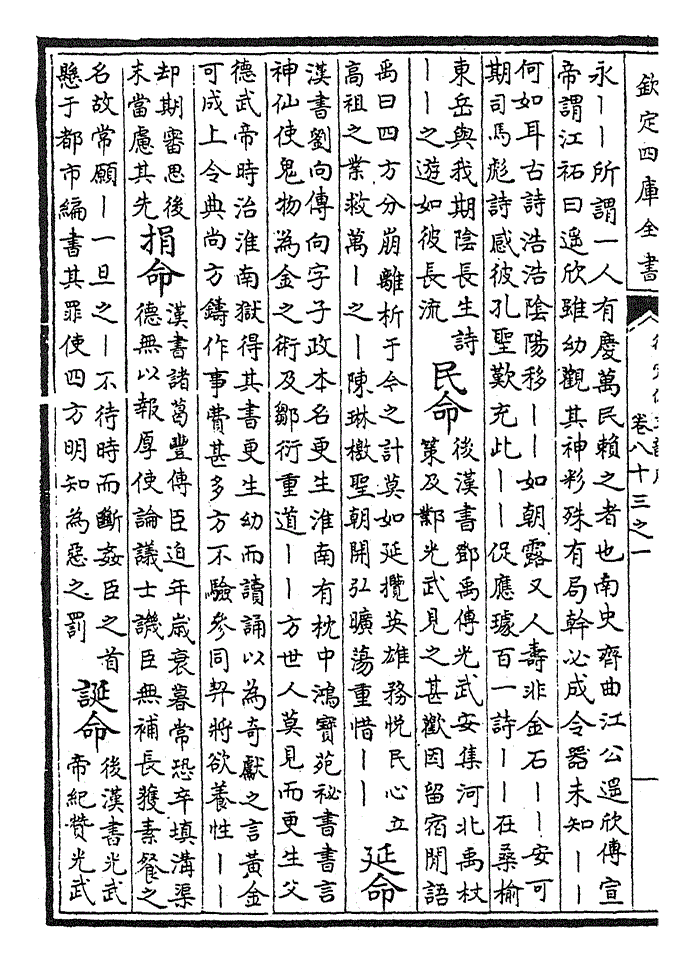 欽定四庫全書
卷八十三之一
永丨丨所謂一人有慶萬民賴之者也南史齊曲江公遥欣傳宣
帝謂江祏曰遥欣雖幼觀其神彩殊有局幹必成令器未知丨丨
何如耳古詩浩浩陰陽移丨丨如朝露又人壽非金石丨丨安可
期司馬彪詩感彼孔聖歎充此丨丨促應璩百一詩丨丨在桑榆
東岳與我期陰長生詩
丨丨之遊如彼長流
民命
後漢書鄧禹傳光武安集河北禹杖
策及鄴光武見之甚歡因留宿閒語
禹曰四方分崩離析于今之計莫如延攬英雄務悅民心立
高祖之業救萬丨之丨陳琳檄聖朝開弘曠蕩重惜丨丨
延命
漢書劉向傳向字子政本名更生淮南有枕中鴻寶苑祕書書言
神仙使鬼物為金之術及鄒衍重道丨丨方世人莫見而更生父
德武帝時治淮南獄得其書更生幼而讀誦以為奇獻之言黃金
可成上令典尚方鑄作事費甚多方不驗參同契將欲養性丨丨
却期審思後
末當慮其先
捐命
漢書諸葛豐傳臣迫年嵗衰暮常恐卒填溝渠
德無以報厚使論議士譏臣無補長獲素餐之
名故常願丨一旦之丨不待時而斷姦臣之首
懸于都市編書其罪使四方明知為惡之罰
誕命
後漢書光武
帝紀贊光武